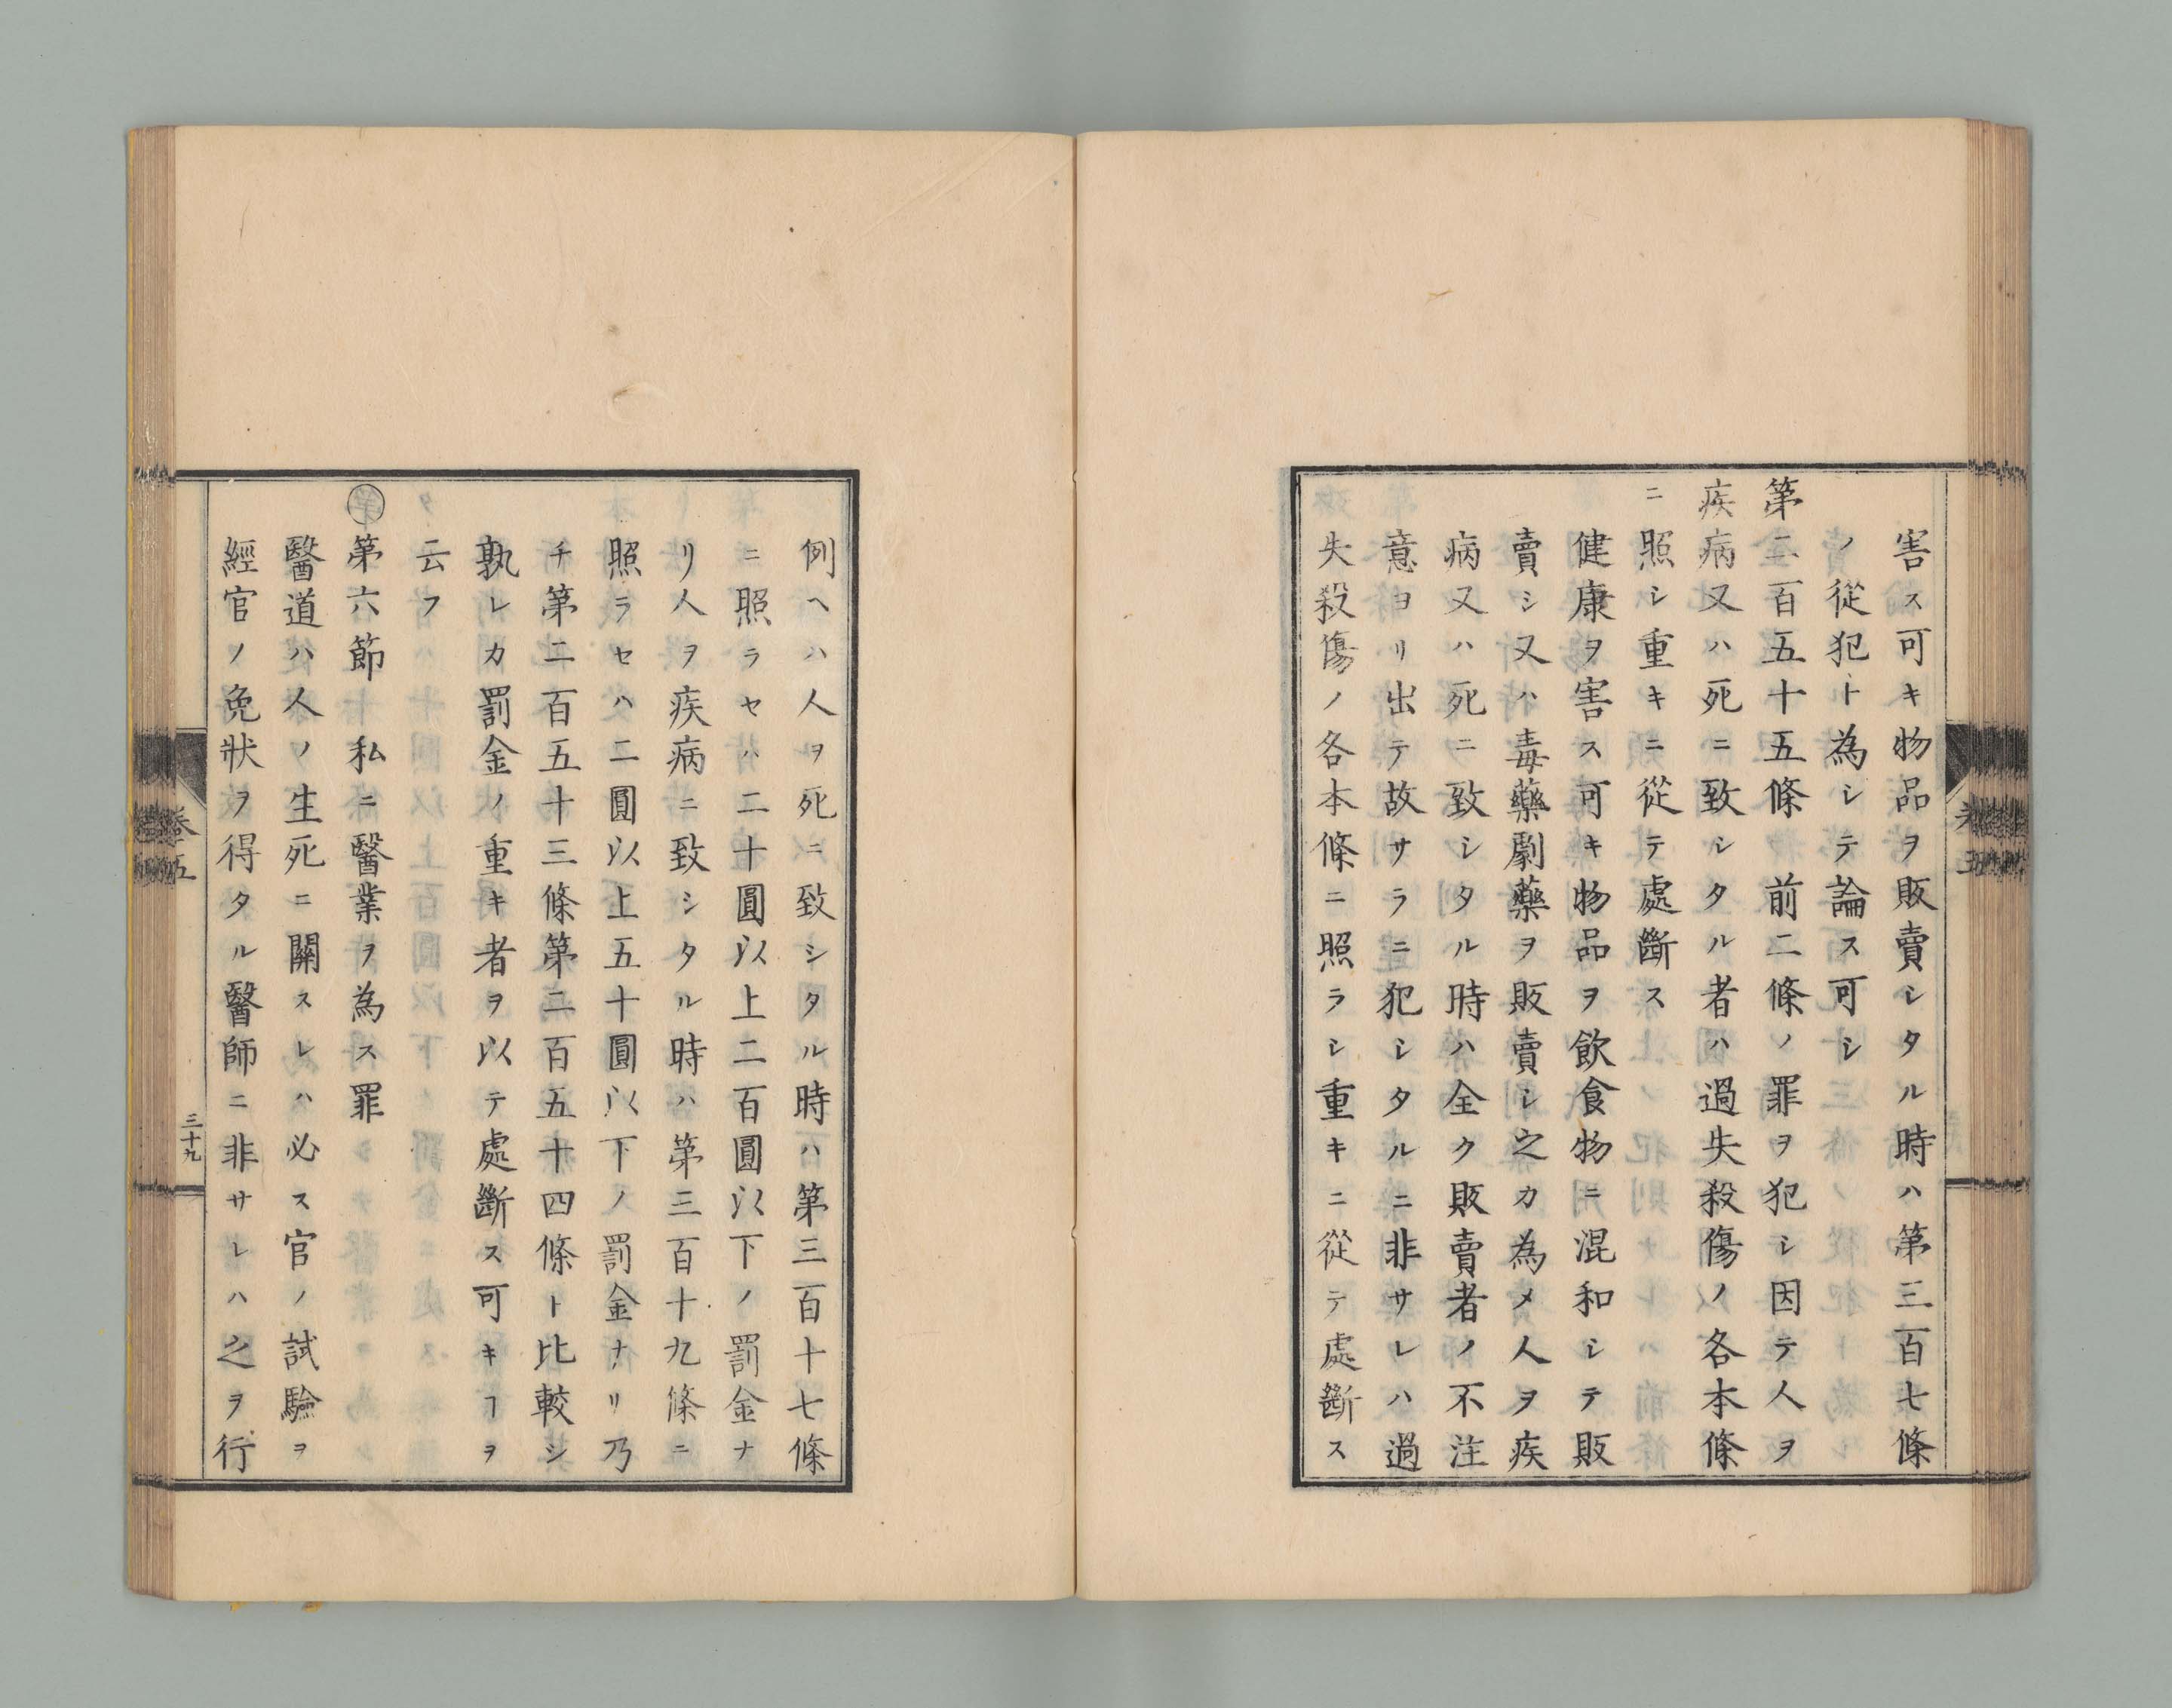 害ス可キ物品ヲ販賣シタル時ハ第三百七條
ノ從犯ト為シテ論ス可シ
第二百五十五條 前二條ノ罪ヲ犯シ因テ人ヲ
疾病又ハ死ニ致シタル者ハ過失殺傷ノ各本條
ニ照シ重キニ從テ處斷ス
健康ヲ害ス可キ物品ヲ飲食物ニ混和シテ販
賣シ又ハ毒藥劇藥ヲ販賣シ之カ為メ人ヲ疾
病又ハ死ニ致シタル時ハ全ク販賣者ノ不注
意ヨリ出テ故サラニ犯シタルニ非サレハ過
失殺傷ノ各本條ニ照ラシ重キニ從テ處斷ス
卷五
例ヘハ人ヲ死ニ致シタル時ハ第三百十七條
ニ照ラセハ二十圓以上二百圓以下ノ罰金ナ
リ人ヲ疾病ニ致シタル時ハ第三百十九條ニ
照ラセハ二圓以上五十圓以下ノ罰金ナリ乃
チ第二百五十三條第二百五十四條ト比較シ
孰レカ罰金ノ重キ者ヲ以テ處斷ス可キヿヲ
云フ
第六節 私ニ醫業ヲ為ス罪
醫道ハ人ノ生死ニ關スレハ必ス官ノ試驗ヲ
經官ノ免狀ヲ得タル醫師ニ非サレハ之ヲ行
卷五
三十九